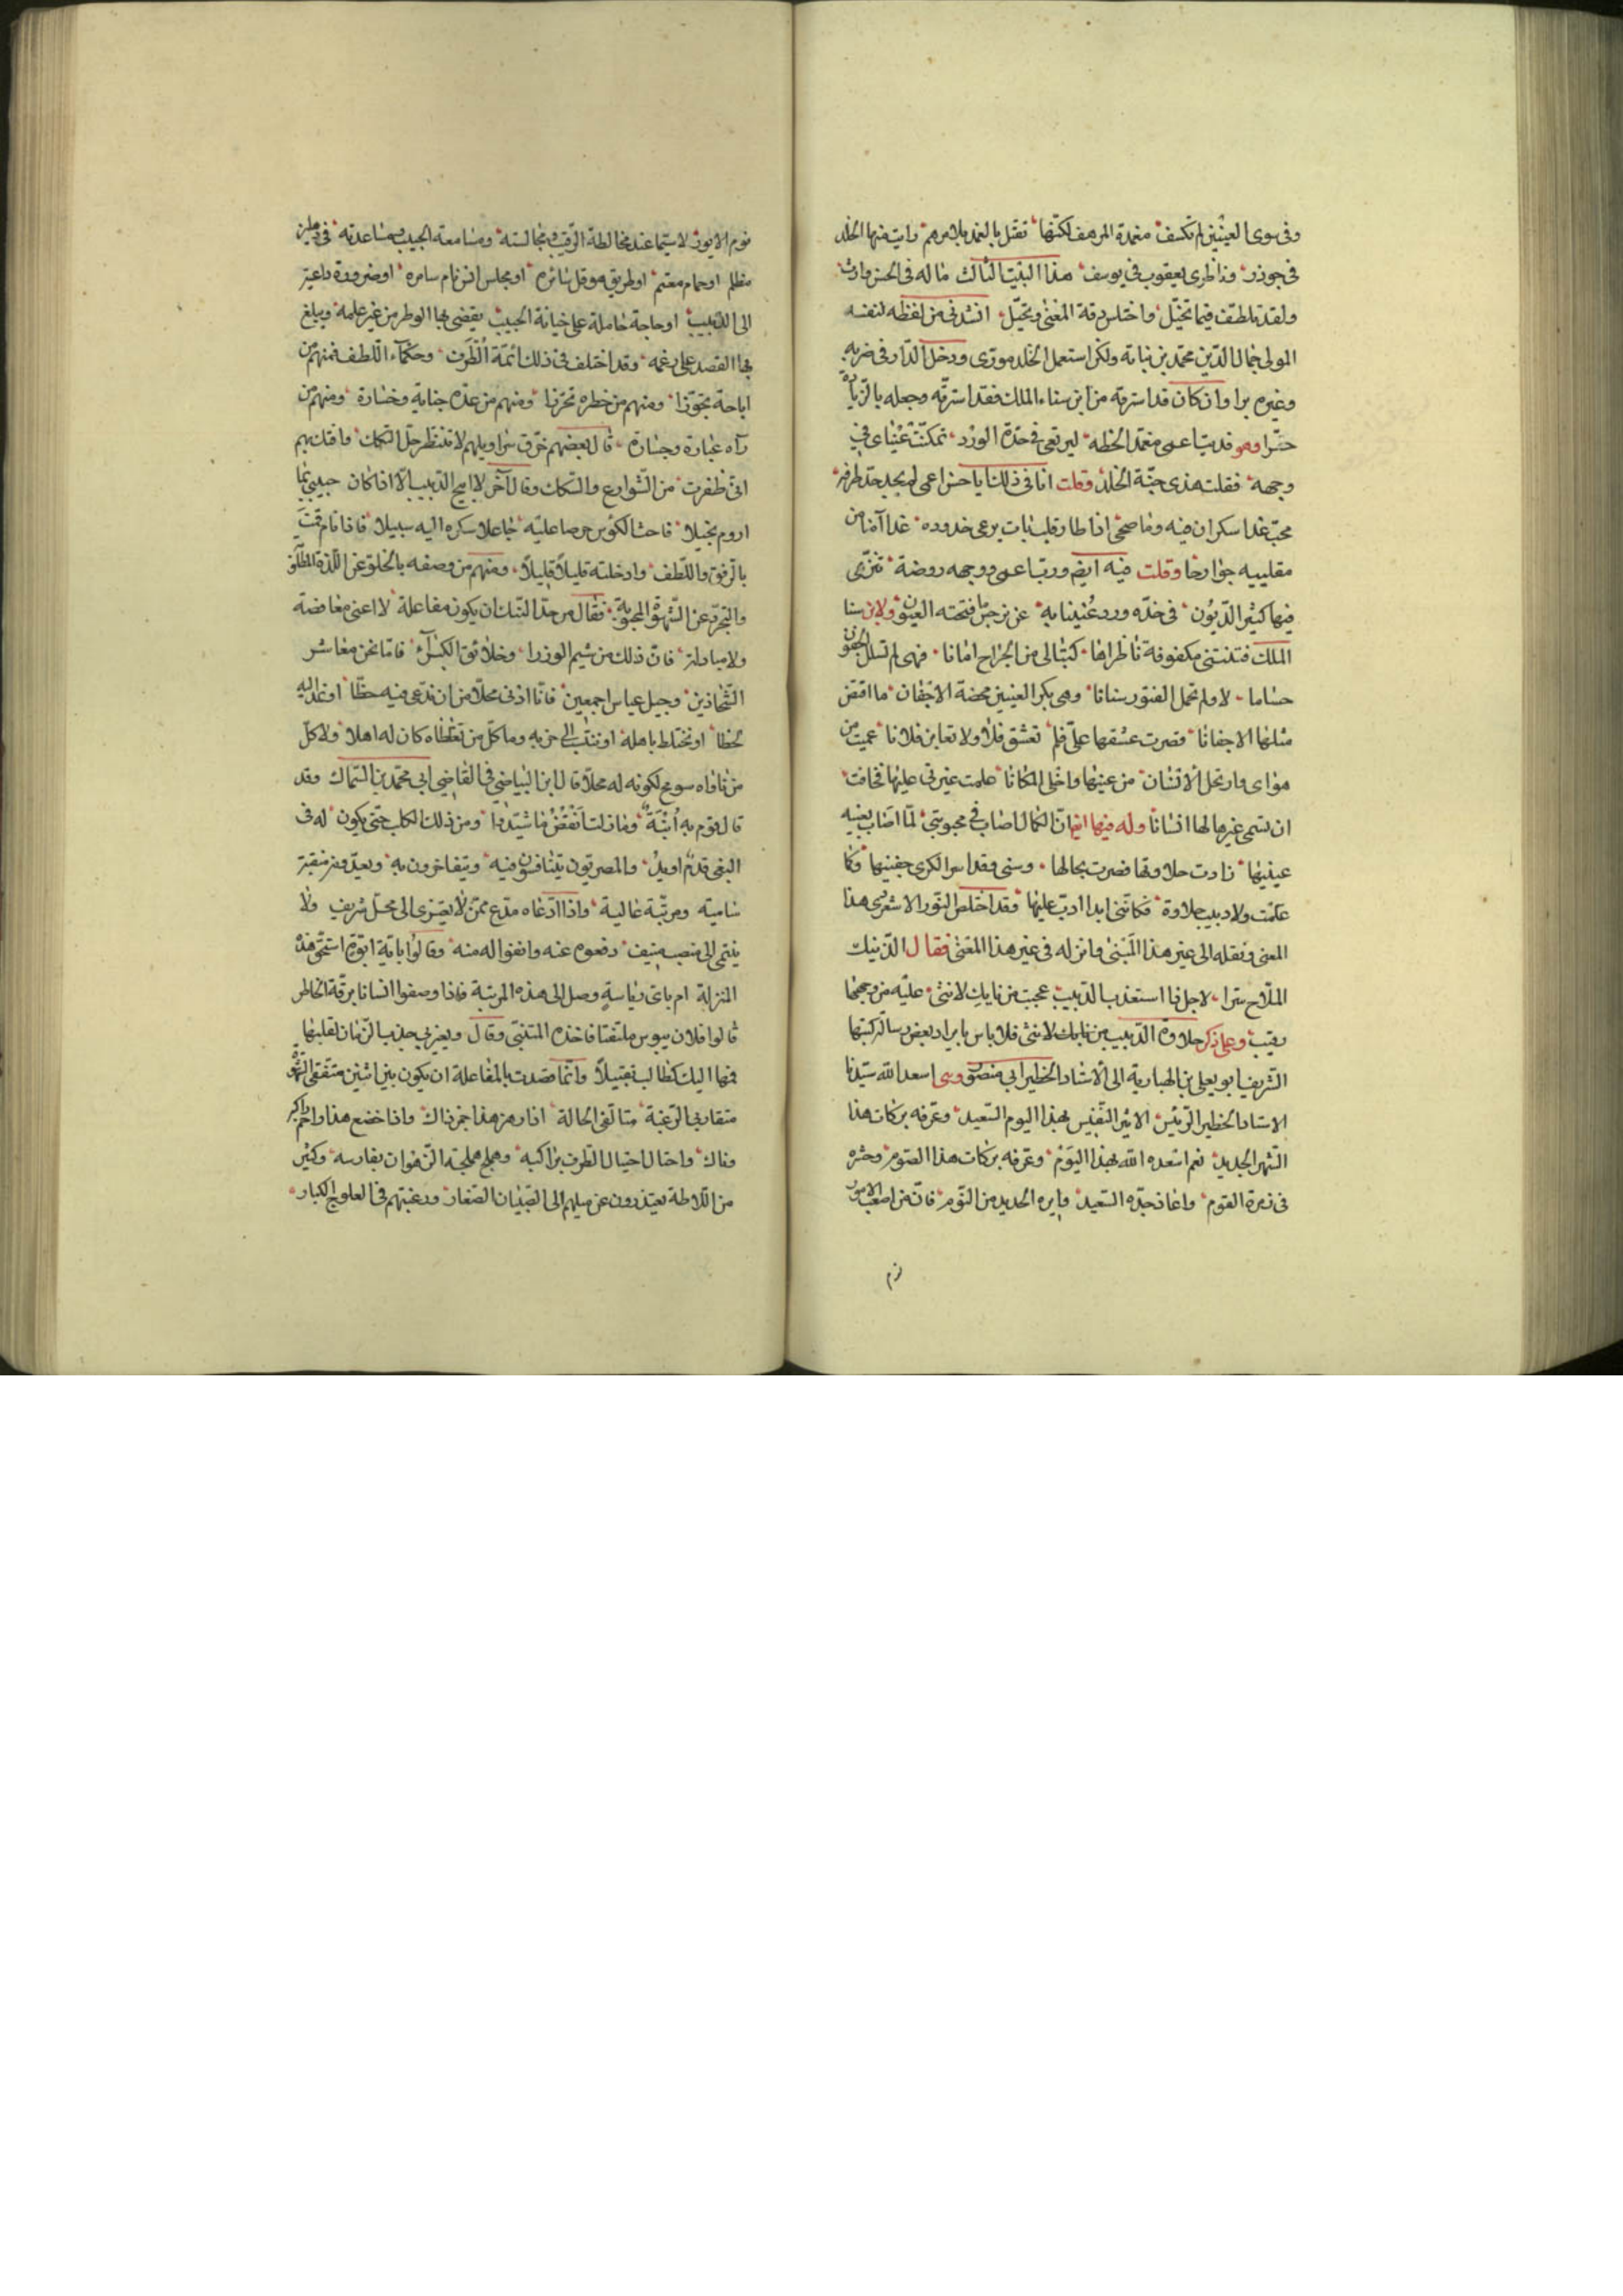 وفى سوى العينين لم تكسف مغمدة المرهف لكنها تقتل بالغمد بلا مرهف رايت فيها الخلد
فى جوذر وناظرى يعقوب فى يوسف هذا البيت الثالث ماله فى الحسن وارث
ولقد تلطف فيما تخيل واختلس رقة المعنى وتحيل انشدنى من لفظه لنفسه
المولى جمال الدين محمد بن نباتة ولكن استعمل الخلد مورى ودخل الدار فى ضربه
وغيره برا وان كان قد استرقه من ابن سناء الملك فقد استرقه وجعله بالزيادة
حرا وهو فديت اعمى مغمد الحظه ليرتعى فى خده الورد تمكنت عيناى فى
وجهه فقلت هذى جنة الخلد وقلت انا فى ذلك ايا حسن اعمى لم يجد حد طرفه
محب غدا سكران فيه وما صحى اذا طار قلب بات يرعى خدوده غدا آمنا من
مقلتيه جوارحا وقلت فيه ايضا ورب اعمى وجهه روضة تنزهى
فيها كثير الديون فى خده ورد غنينا به عن نرجس ما فتحته العيون ولابن سنا
الملك فتنتنى مكفوفة ناظراها كتبا لى من الجراح امانا فهى لم تسلل الجفون
حساما لا ولم تحمل الفتور سنانا وهى بكر العينين محضة الاجفان ما افتض
مثلها الاجفانا قصرت عشقها على فلم تعشق فلانا ولا تعاين فلانا عميت من
هواى وارتحل الانسان من عينها واخلى المكانا علمت غيرتى عليها فخافت
ان تسمى غيرها لها انسانا وله فيها ايضا ان الكمال اصاب فى محبوبتى لما اصاب بعينه
عينيها زادت حلاوتها فصرت بحالها وسنى وقد اسر الكرى جفنيها وكما
علمت ولا دبيب حلاوة فكاننى ابدا ادب عليها فقد اختلص النور الاشعرى هذا
المعنى ونقله الى غير هذا المبنى وانزله فى غير هذا المغنى فقال الذ نيك
الملاح سرا لاجل ذا استعذب الدبيب عجبت من نايك لانثى عليه من وجهها
رقيب وعلى ذكر حلاوة الدبيب من نايك لانثى فلا باس بايراد بعض رسالة كتبها
الشريف ابو يعلى بن الهبارية الى الاستاد الخطير ابى منصور وهى اسعد الله سيدنا
الاستاد الخطير الرئيس الاثير النفيس بهذا اليوم السعيد وعرفه بركات هذا
الشهر الجديد نعم اسعده الله بهذا اليوم وعرفه بركات هذا الصوم وحشره
فى زمرة القوم واعاذ جده السعيد وايره الحديد من النوم فان من اصعب الامور
نوم الايور لا سيما عند مخالطة الرقيب ومجالسته ومسامعة الحبيب ومساعدته فى دهليز
مظلم او حمام معتم او طريق هو قل سائره او مجلس انس نام سامره او ضرورة داعية
الى الدبيب او حاجة حاملة على خيانة الحبيب يقضى بها الوطر من غير علمه ويبلغ
بها القصد على رغمه وقد اختلف فى ذلك ائمة الظرف وحكماء اللطف فمنهم من
اباحة تجوزا ومنهم من حظره تحرزا ومنهم من عده جناية وخسارة ومنهم من
رآه عيارة وجسارة قال بعضهم خرق سراويلهم لا تنتظر حل التكك وافتك بهم
انى ظفرت من الشوارع والسكك وقال آخر لا ابيح الدبيب الا اذا كان حبيبى بما
اروم بخيلا فاحث الكؤس حرصا عليه جاعلا سكره اليه سبيلا فاذا نام قمت
بالرفق واللطف وادخلته قليلا قليلا ومنهم من وصفه بالخلو عن اللذة المطلوبة
والتجرد عن الشهوة المحبوبة فقال من حد النيك ان يكون مفاعلة لا اعنى معاوضة
ولا مبادلة فان ذلك من شيم الوزرا وخلائق الكبراء فاما نحن معاشر
الشحاذين وجيل عباس اجمعين فانا ادنى محلا من ان ندعى فيه حظا او نمد اليه
لحظا او نختلط باهله او ننتسب الى حزبه وما كل من تعطاه كان له اهلا ولا كل
من ناواه سومح لكونه له محلا قال ابن البياضى فى القاضى ابى محمد بن السماك وقد
قال قوم به أبنة وما زلت أنقض ما شيدوا ومن ذلك الكلب حتى يكون له فى
البغى قدم او يد والمصريون يتنافسون فيه ويتفاخرون به ويعد وهو منقبة
سامية ومرتبة عالية واذا ادعاه مدع ممن لا يعتزى الى محل شريف ولا
ينتمى الى منصب منيف دفعوه عنه وانفوا له منه وقالوا باية ابوة استحق هذه
المنزلة ام باى رياسة وصل الى هذه المرتبة فاذا وصفوا انسانا برقة الخاطر
قالوا فلان يبوس ملتفتا فاخذه المتنبى وقال ويغيرنى جذب الزمان لقلبها
فمها اليك كطالب تقبيلا وانما قصدت بالمفاعلة ان يكون بين اثنين متفقى الشهوة
متقاربى الرغبة متالفى الحالة اذا رهز هذا جمز ذاك واذا خضع هذا واحم كبر
وناك واحتال احتيال الطرف براكبه وهملج هملجة الرهوان بفارسه وكثير
من اللاطة يعتذرون عن ميلهم الى الصبيان الصغار ورغبتهم فى العلوج الكبار